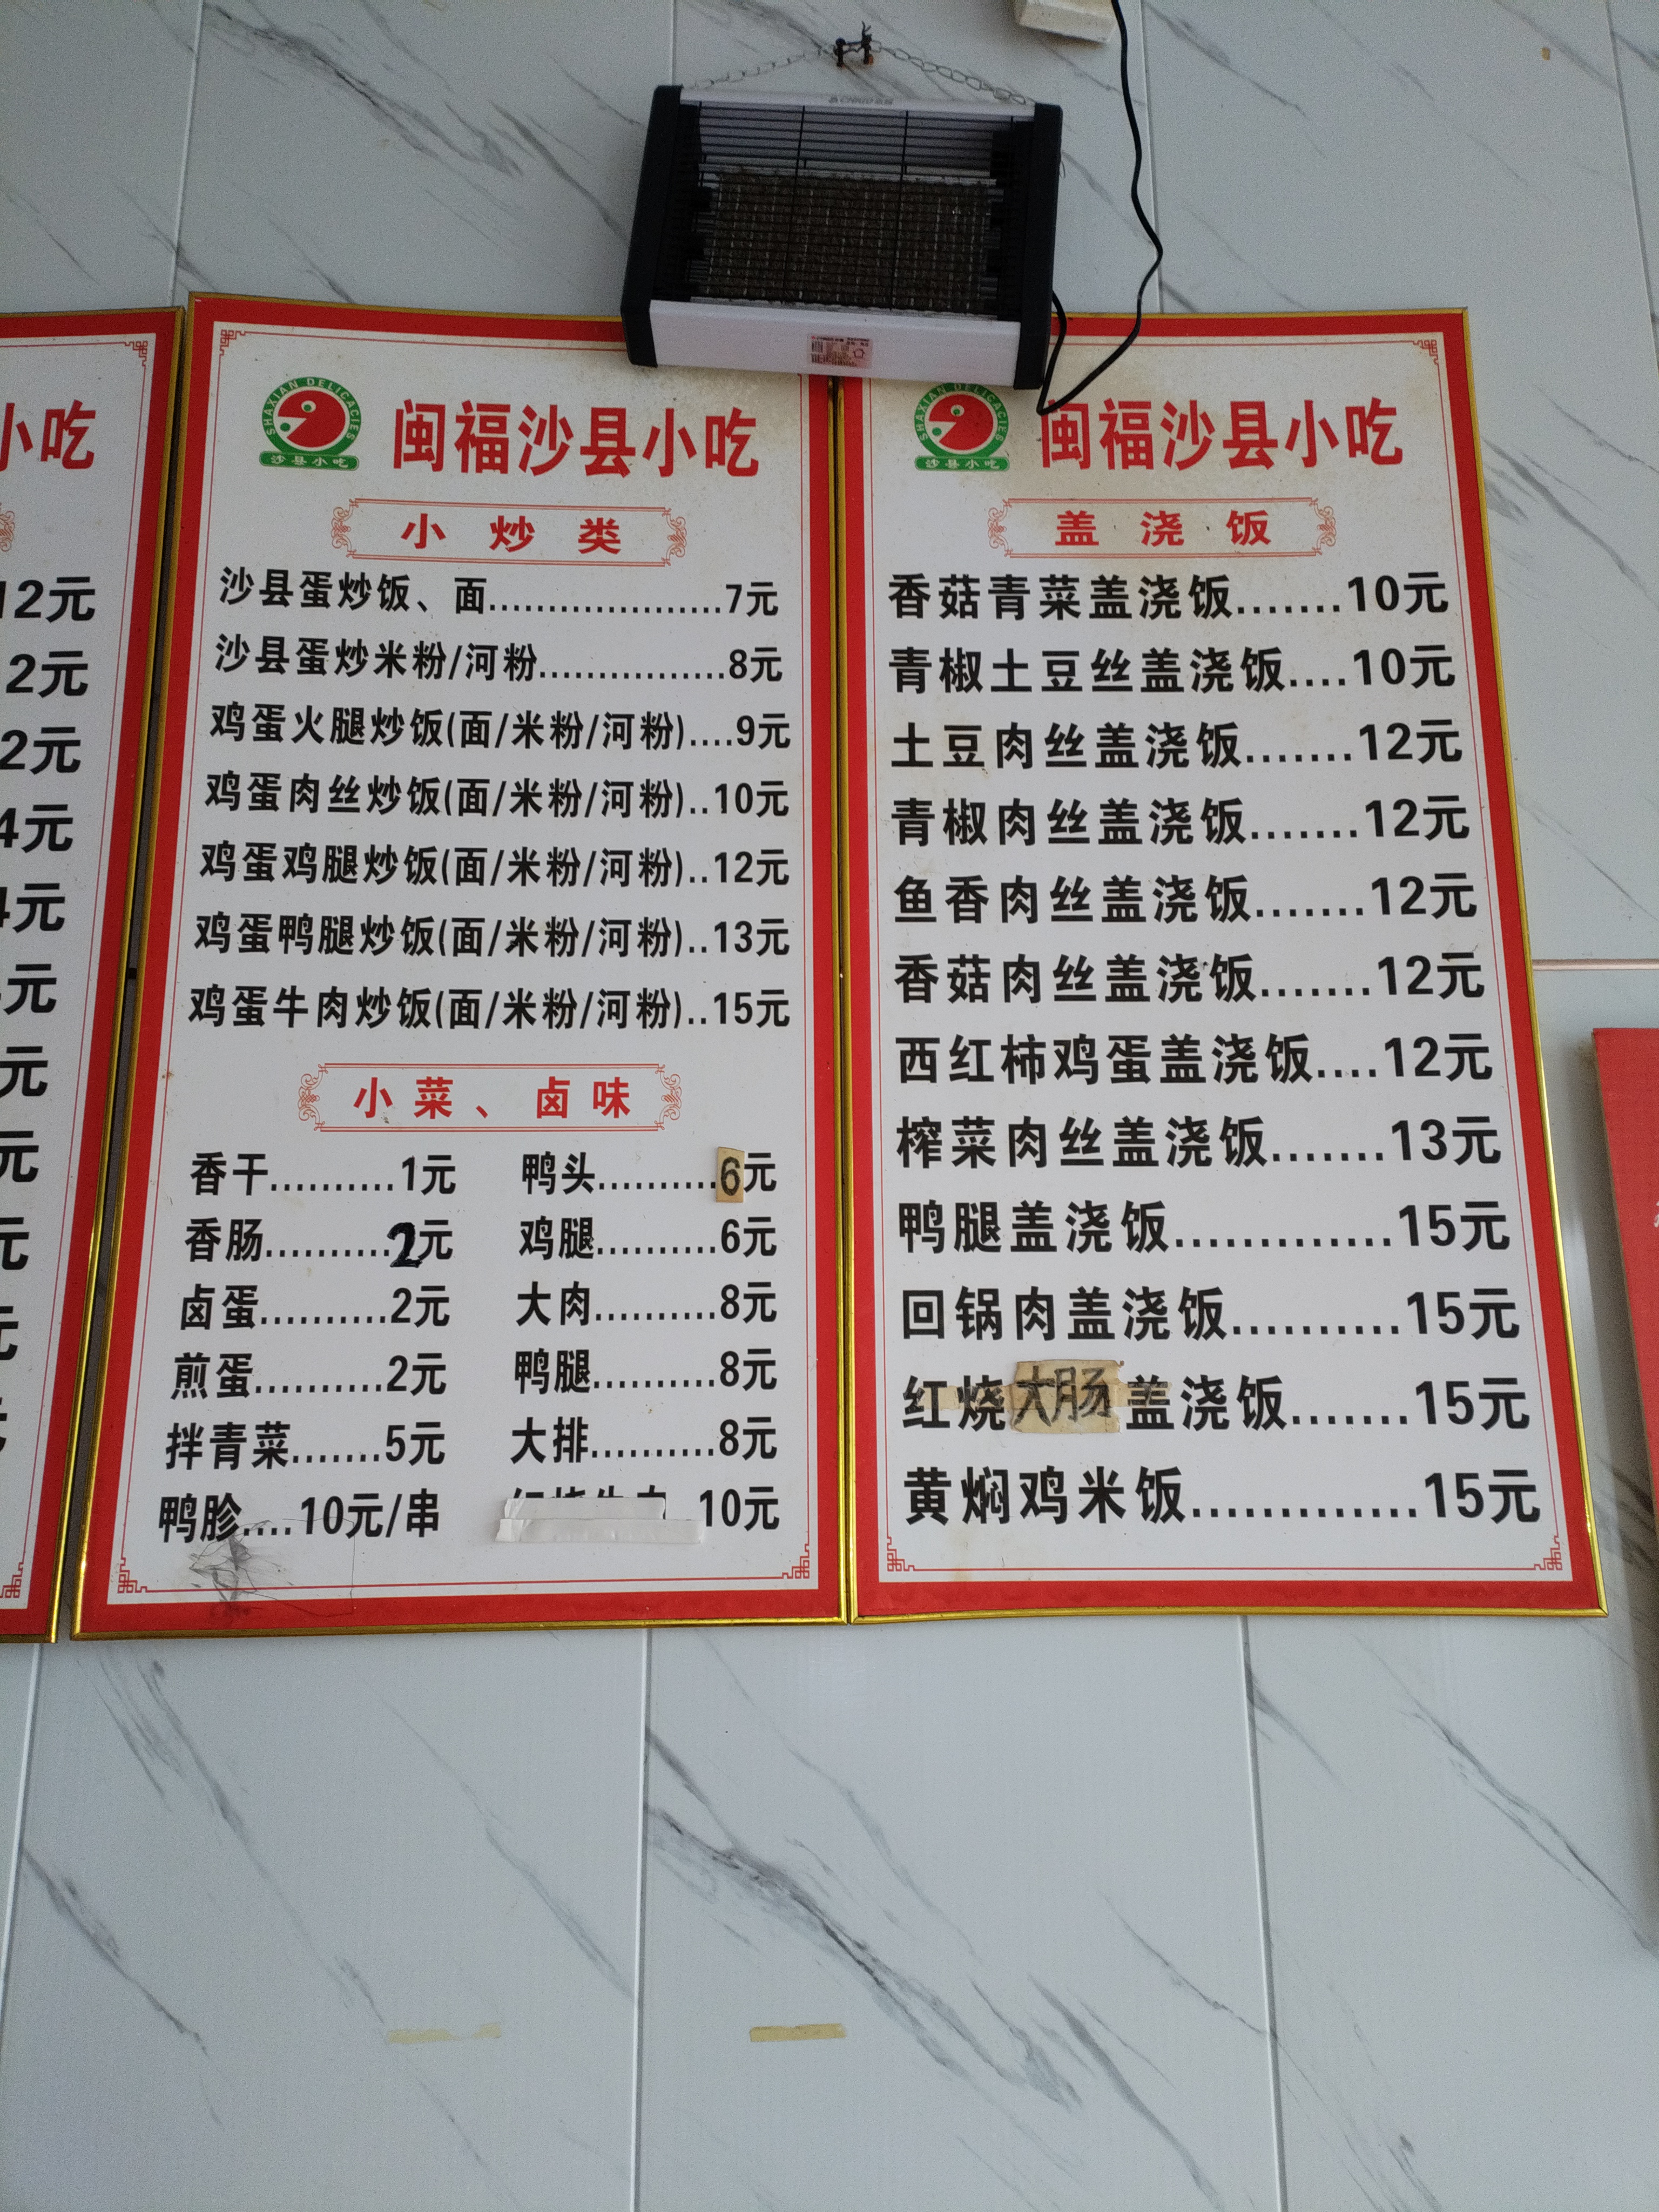 小吃
12元
2元
2元
4元
4元
元
元
元
元
元
SHAXIAN DELICACIES
沙县小吃
闽福沙县小吃
小炒类
沙县蛋炒饭、面....................7元
沙县蛋炒米粉/河粉................8元
鸡蛋火腿炒饭(面/米粉/河粉)....9元
鸡蛋肉丝炒饭(面/米粉/河粉)..10元
鸡蛋鸡腿炒饭(面/米粉/河粉)..12元
鸡蛋鸭腿炒饭(面/米粉/河粉)..13元
鸡蛋牛肉炒饭(面/米粉/河粉)..15元
小菜、卤味
香干..........1元 鸭头..........6元
香肠..........2元 鸡腿..........6元
卤蛋..........2元 大肉..........8元
煎蛋..........2元 鸭腿..........8元
拌青菜.......5元 大排..........8元
鸭胗....10元/串 10元
SHAXIAN DELICACIES
沙县小吃
闽福沙县小吃
盖浇饭
香菇青菜盖浇饭.......10元
青椒土豆丝盖浇饭....10元
土豆肉丝盖浇饭.......12元
青椒肉丝盖浇饭.......12元
鱼香肉丝盖浇饭.......12元
香菇肉丝盖浇饭.......12元
西红柿鸡蛋盖浇饭....12元
榨菜肉丝盖浇饭.......13元
鸭腿盖浇饭.............15元
回锅肉盖浇饭..........15元
红烧大肠盖浇饭.......15元
黄焖鸡米饭.............15元